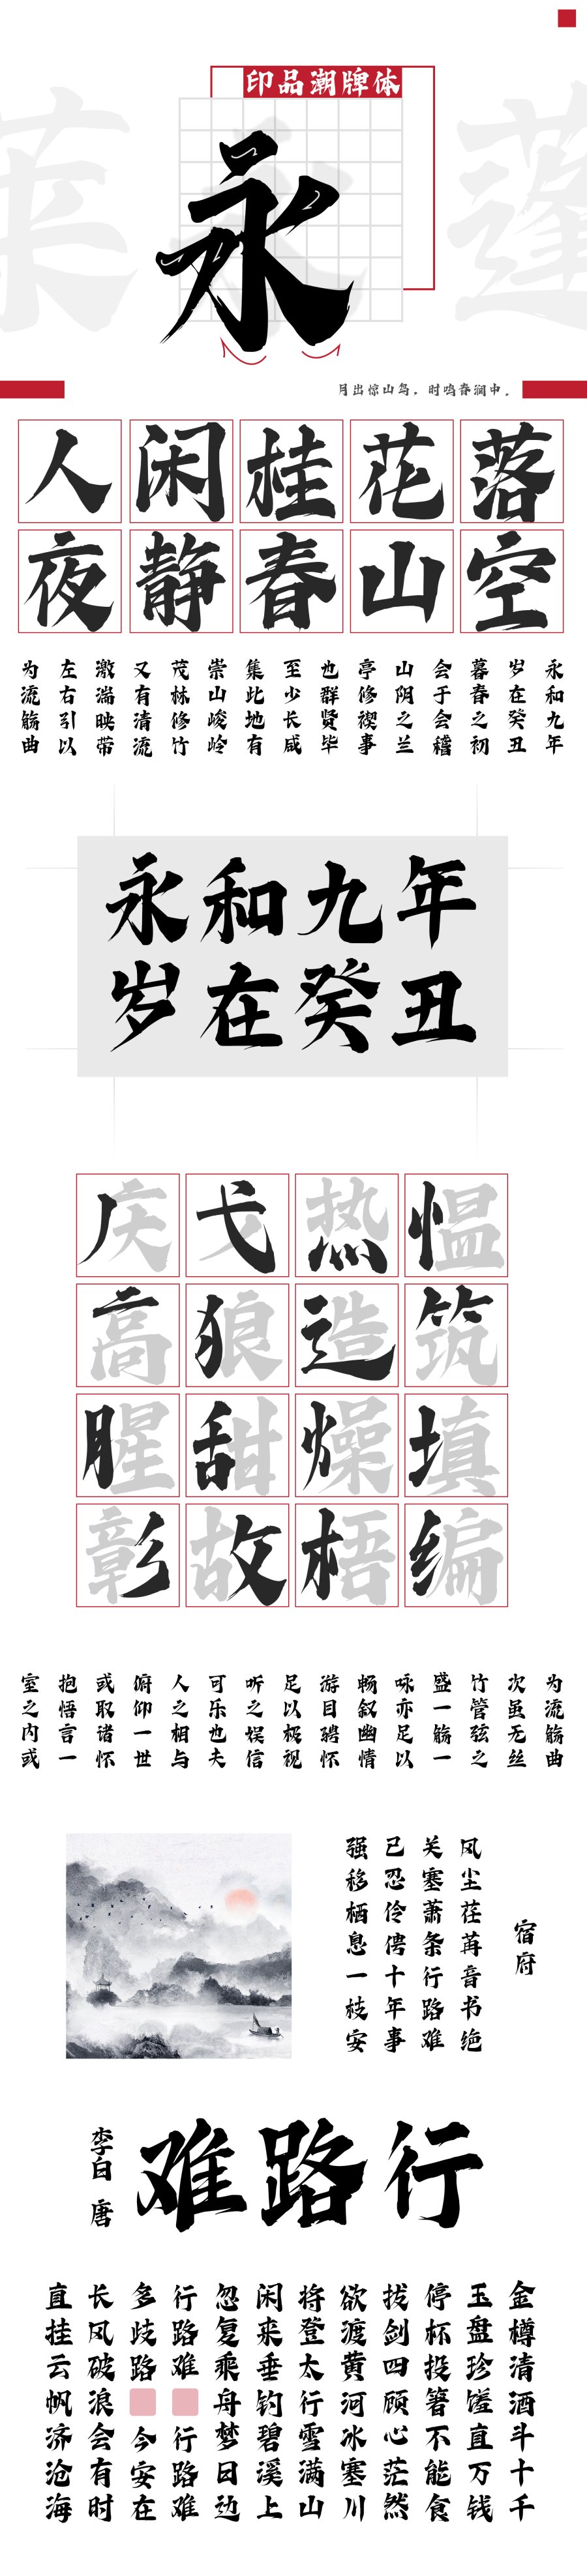 印品潮牌体
莱 永 蓬
永
月出惊山鸟，时鸣春涧中。
人闲桂花落
夜静春山空
永和九年
岁在癸丑
暮春之初
会于会稽
山阴之兰
亭修禊事
也群贤毕
至少长咸
集此地有
崇山峻岭
茂林修竹
又有清流
激湍映带
左右引以
为流觞曲
永和九年
岁在癸丑
庆弋热愠
高狼造筑
腥甜燥填
彰故梧编
为流觞曲
次虽无丝
竹管弦之
盛一觞一
咏亦足以
畅叙幽情
游目骋怀
足以极视
听之娱信
可乐也夫
人之相与
俯仰一世
或取诸怀
抱悟言一
室之内或
宿府
风尘荏苒音书绝
关塞萧条行路难
已忍伶俜十年事
强移栖息一枝安
行路难
唐 李白
金樽清酒斗十千
玉盘珍馐直万钱
停杯投箸不能食
拔剑四顾心茫然
欲渡黄河冰塞川
将登太行雪满山
闲来垂钓碧溪上
忽复乘舟梦日边
行路难 行路难
多歧路 今安在
长风破浪会有时
直挂云帆济沧海